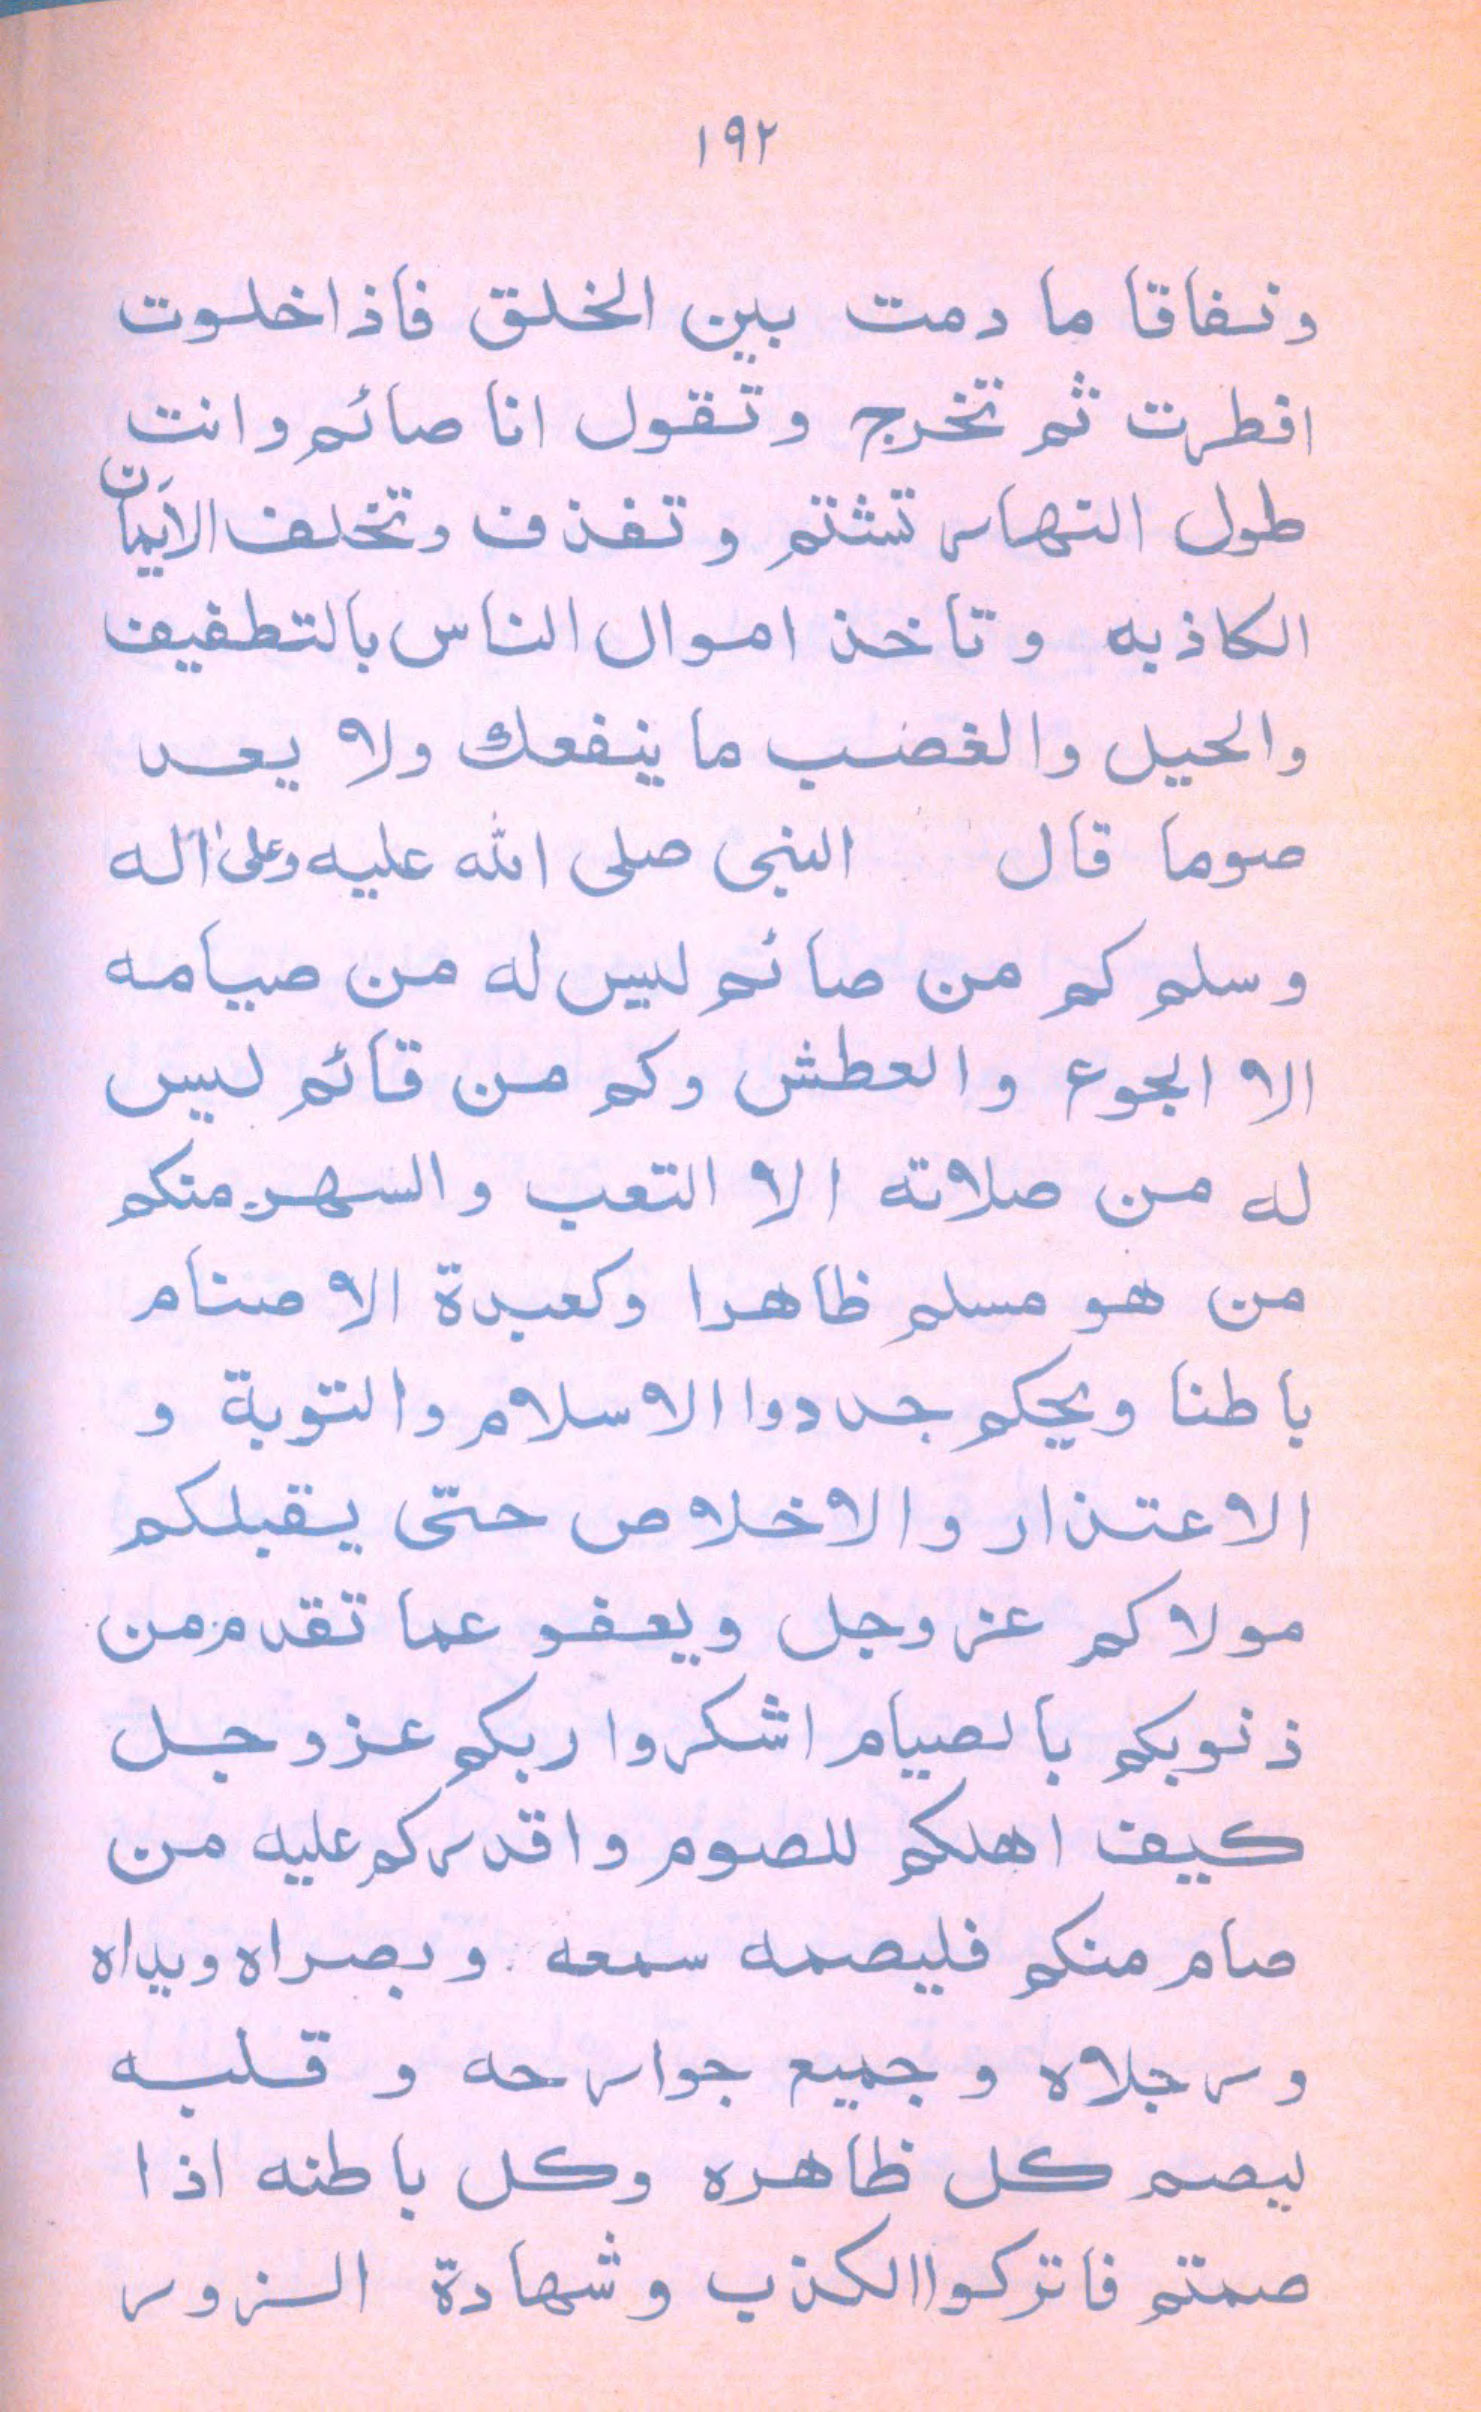 ١٩٢
ونفاقا ما دمت بين الخلق فاذا خلوت
افطرت ثم تخرج وتقول انا صائم وانت
طول النهار تشتم وتقذف وتحلف الأيمان
الكاذبه وتاخذ اموال الناس بالتطفيف
والحيل والغضب ما ينفعك ولا يعد
صوما قال النبى صلى الله عليه وعلى اله
وسلم كم من صائم ليس له من صيامه
الا الجوع والعطش وكم من قائم ليس
له من صلاته الا التعب والسهر منكم
من هو مسلم ظاهرا وكعبدة الاصنام
باطنا ويحكم جددوا الاسلام والتوبة و
الاعتذار والاخلاص حتى يقبلكم
مولاكم عز وجل ويعفو عما تقدم من
ذنوبكم بالصيام اشكروا ربكم عز وجل
كيف اهلكم للصوم واقدركم عليه من
صام منكم فليصمه سمعه وبصراه ويداه
ورجلاه وجميع جوارحه وقلبه
ليصم كل ظاهره وكل باطنه اذا
صمتم فاتركوا الكذب وشهادة الزور